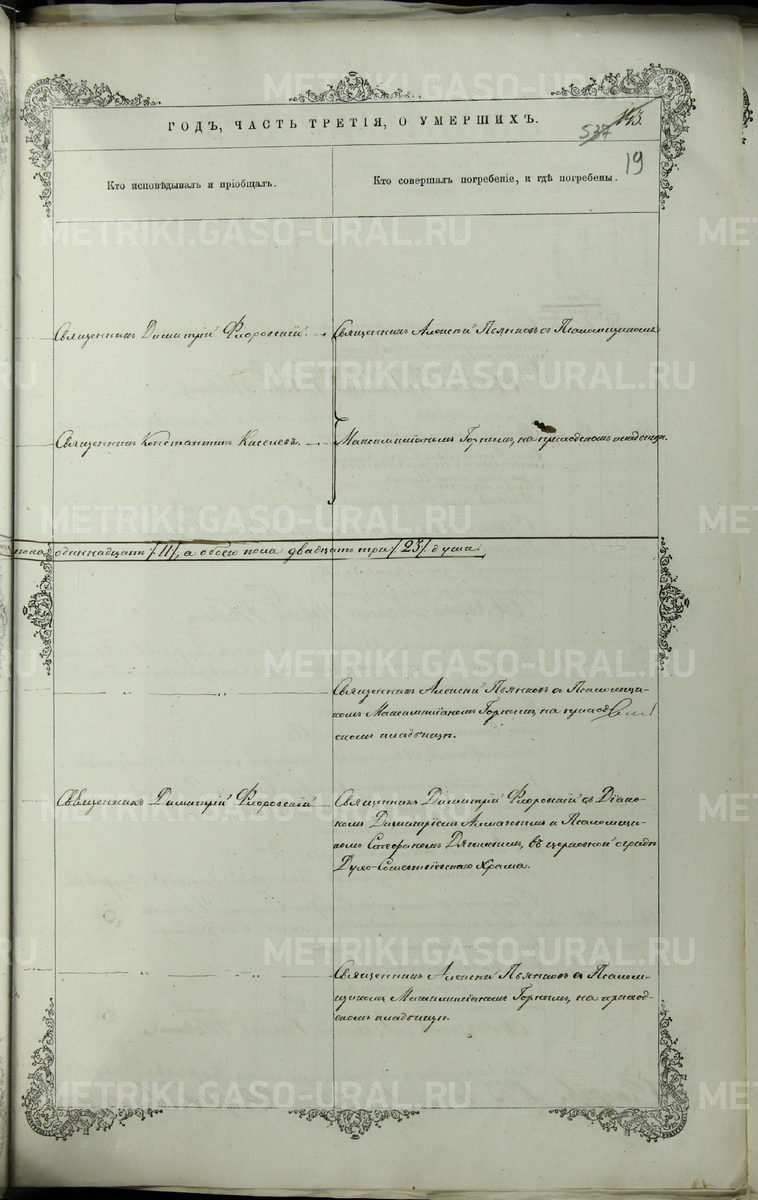 ГОДЪ, ЧАСТЬ ТРЕТІЯ, О УМЕРШИХЪ.
537 143.
19
Кто исповѣдывалъ и пріобщалъ.
Кто совершалъ погребеніе, и гдѣ погребены.
Священникъ Димитрій Флоровскій.
Священникъ Алексій Пьянковъ съ Псаломщикомъ
Священникъ Константинъ Киселевъ.
Максимиліаномъ Горнымъ, на приходскомъ кладбищѣ.
пола одиннадцать /11/, а обоего пола двадцать три /23/ души.
Священникъ Алексій Пьянковъ съ Псаломщи-
комъ Максимиліаномъ Горнымъ, на приход-
скомъ кладбищѣ.
Священникъ Димитрій Флоровскій
Священникъ Димитрій Флоровскій съ Діако-
номъ Димитріемъ Алмазовымъ и Псаломщи-
комъ Стефаномъ, въ церковной оградѣ
Духо-Сошествіевскаго Храма.
Священникъ Алексій Пьянковъ съ Псалом-
щикомъ Максимиліаномъ Горнымъ, на приход-
скомъ кладбищѣ.
METRIKI.GASO-URAL.RU